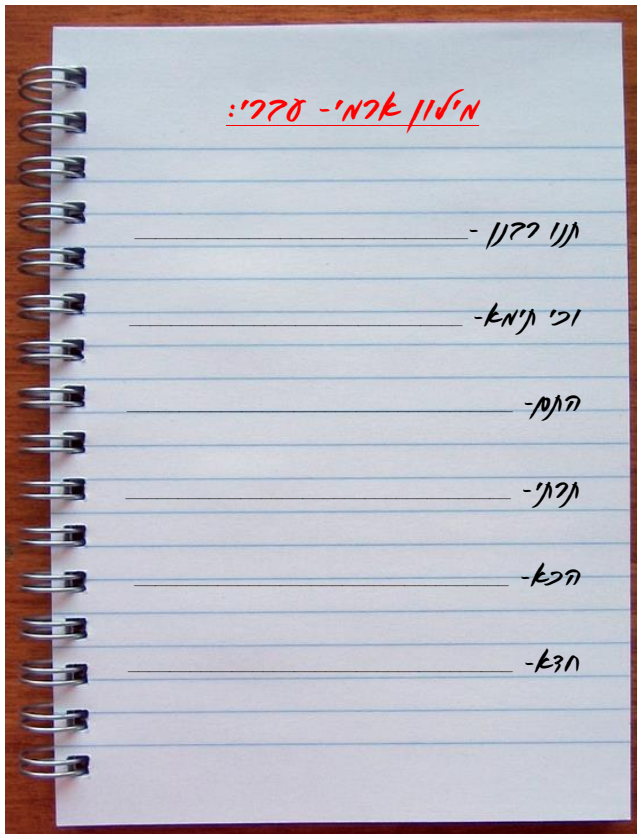 מילון ארמי- עברי:
תנו רבנן - ________________
וכי תימא- ________________
התם- ________________
תרתי- ________________
הכא- ________________
חדא- ________________